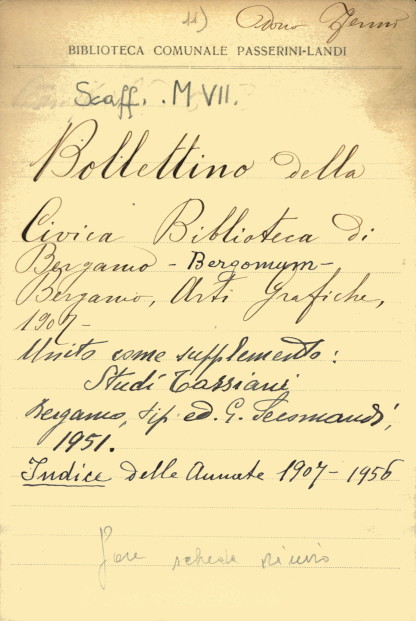 11) Dono Fermi
BIBLIOTECA COMUNALE PASSERINI-LANDI
Scaff. M VII.
Bollettino della
Civica Biblioteca di
Bergamo - Bergomum -
Bergamo, Arti Grafiche,
1907 -
Unito come supplemento:
Studi Tassiani
Bergamo, tip. ed. G. Secomandi,
1951.
Indice delle Annate 1907 - 1956
fare scheda rinvio